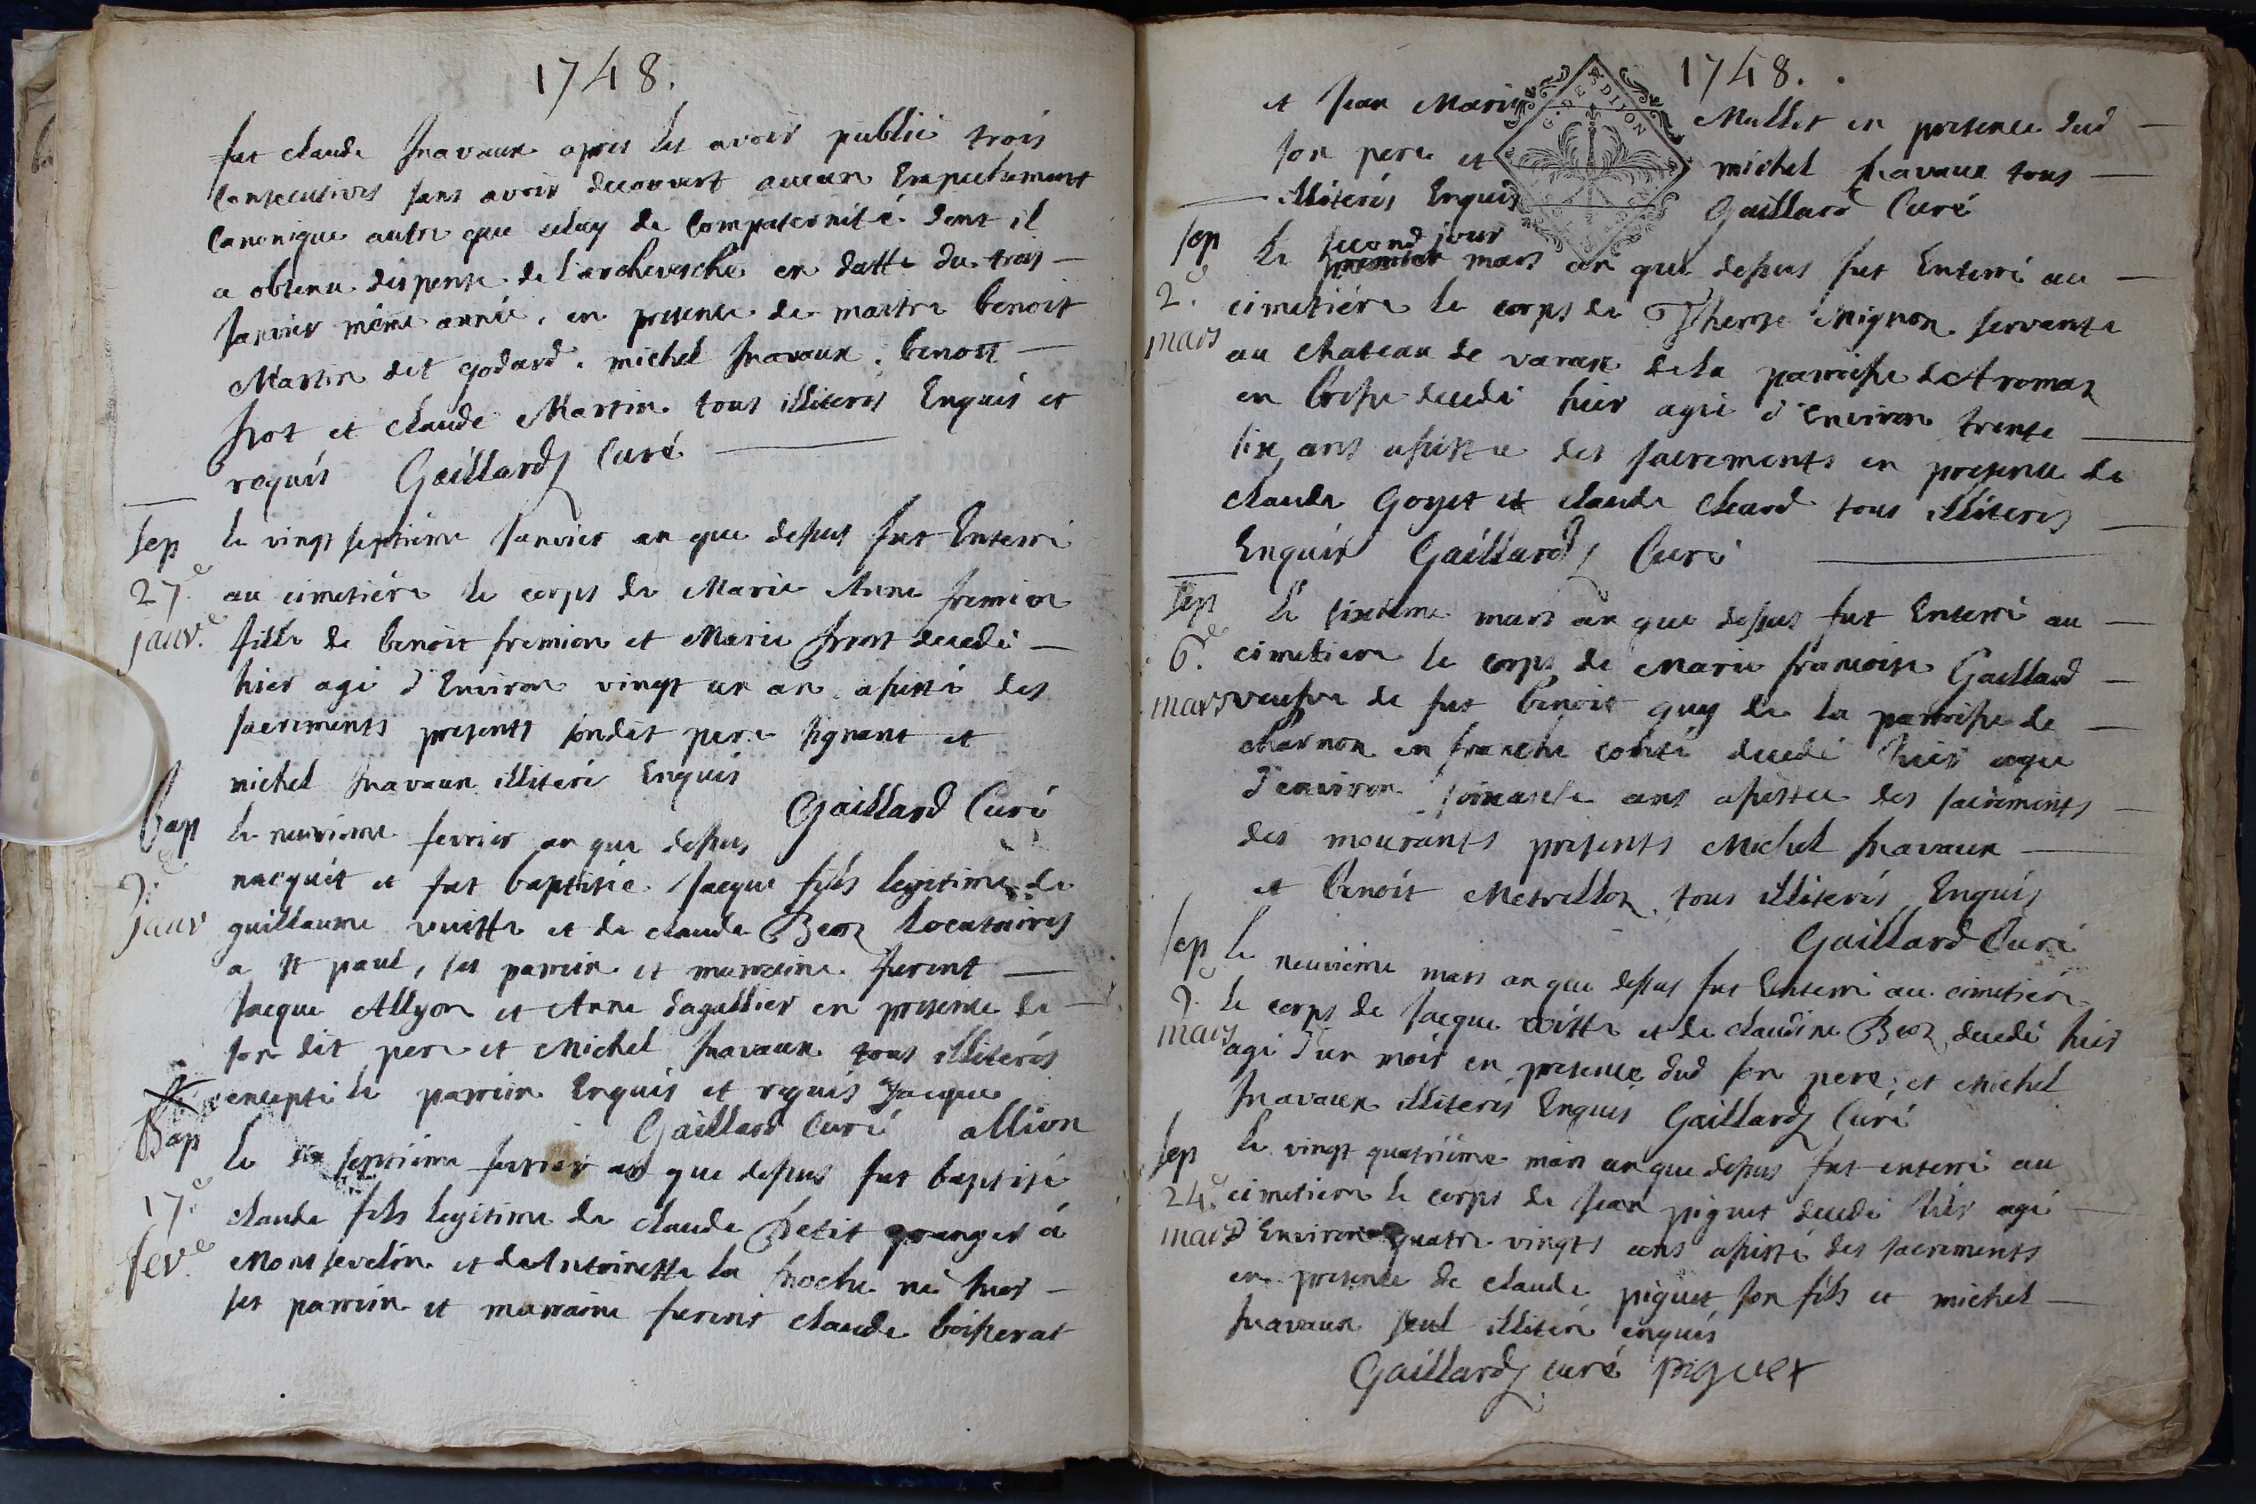 1748.
fut claude travaux apres les avoir publié trois
consecutives sans avoir decouvert aucun Empechement
canonique autre que celuy de compaternité dont il
a obtenu dispense de l'archevesché en datte du trois
janvier même année, en presence de maitre benoit
Martin dit godard, michel travaux, benoit
et claude Martin tous illiterés Enquis et
requis Gaillard Curé
sep
27.e
janv.e
le vingt septiéme janvier an que dessus fut Enterré
au cimetiére le corps de Marie Anne fremion
fille de benoit fremion et Marie decedé
hier agé d'Environ vingt un an assisté des
sacrements presents sondit pere signant et
michel travaux illiteré Enquis
Gaillard Curé
bap
9.e
janv
le neuviéme fevrier an que dessus
nacquit et fut baptisé jacque fils legitime de
guillaume vuitte et de claude Beoz Locataires
a st paul, ses parrein et marraine furent
jacque Allyon et Anne dagallier en presence de
son dit pere et Michel travaux tous illiterés
excepté le parrein Enquis et requis Jacque
Gaillard Curé allion
Bap
17.e
fev.e
le dix septiéme fevrier an que dessus fut baptisé
claude fils legitime de claude Petit granger á
Montsevelin et de Antoinette la né hier
ses parrein et marraine furent claude boisserat
1748.
G. DES DIJON
et jean Marie Mullet en presence dud
son pere et michel travaux tous
illiterés Enquis Gaillard Curé
sep
2.e
mars
le premier second jour mars an que dessus fut Enterré au
cimetiére le corps de Therese Mignon servante
au chateau de varax de la parroisse de Aromas
en bresse decedé hier agée d'Environ trente
six ans assistée des sacrements en presence de
claude Goyet et claude cleard tous illiterés
Enquis Gaillard Curé
sep
6.e
mars
le sixiéme mars an que dessus fut Enterré au
cimetiere le corps de Marie francoise Gaillard
veufve de fut benoit guy de la parroisse de
charnon en franche comté decedé hier agée
d'environ soixante ans assistée des sacrements
des mourants presents Michel travaux
et benoit Metrilloz tous illiterés Enquis
Gaillard Curé
sep
9.e
mars
le neuviéme mars an que dessus fut Enterré au cimetiére
le corps de jacque vuitte et de claudine Beoz decedé hier
agé d'un mois en presence dud son pere, et Michel
travaux illiterés Enquis Gaillard Curé
sep
24.e
mars
le vingt quatriéme mars an que dessus fut enterré au
cimetiere le corps de jean piguet decedé hier agé
d'Environ quatre vingts ans assisté des sacrements
en presence de claude piguet son fils et michel
travaux seul illiteré enquis
Gaillard curé piguet